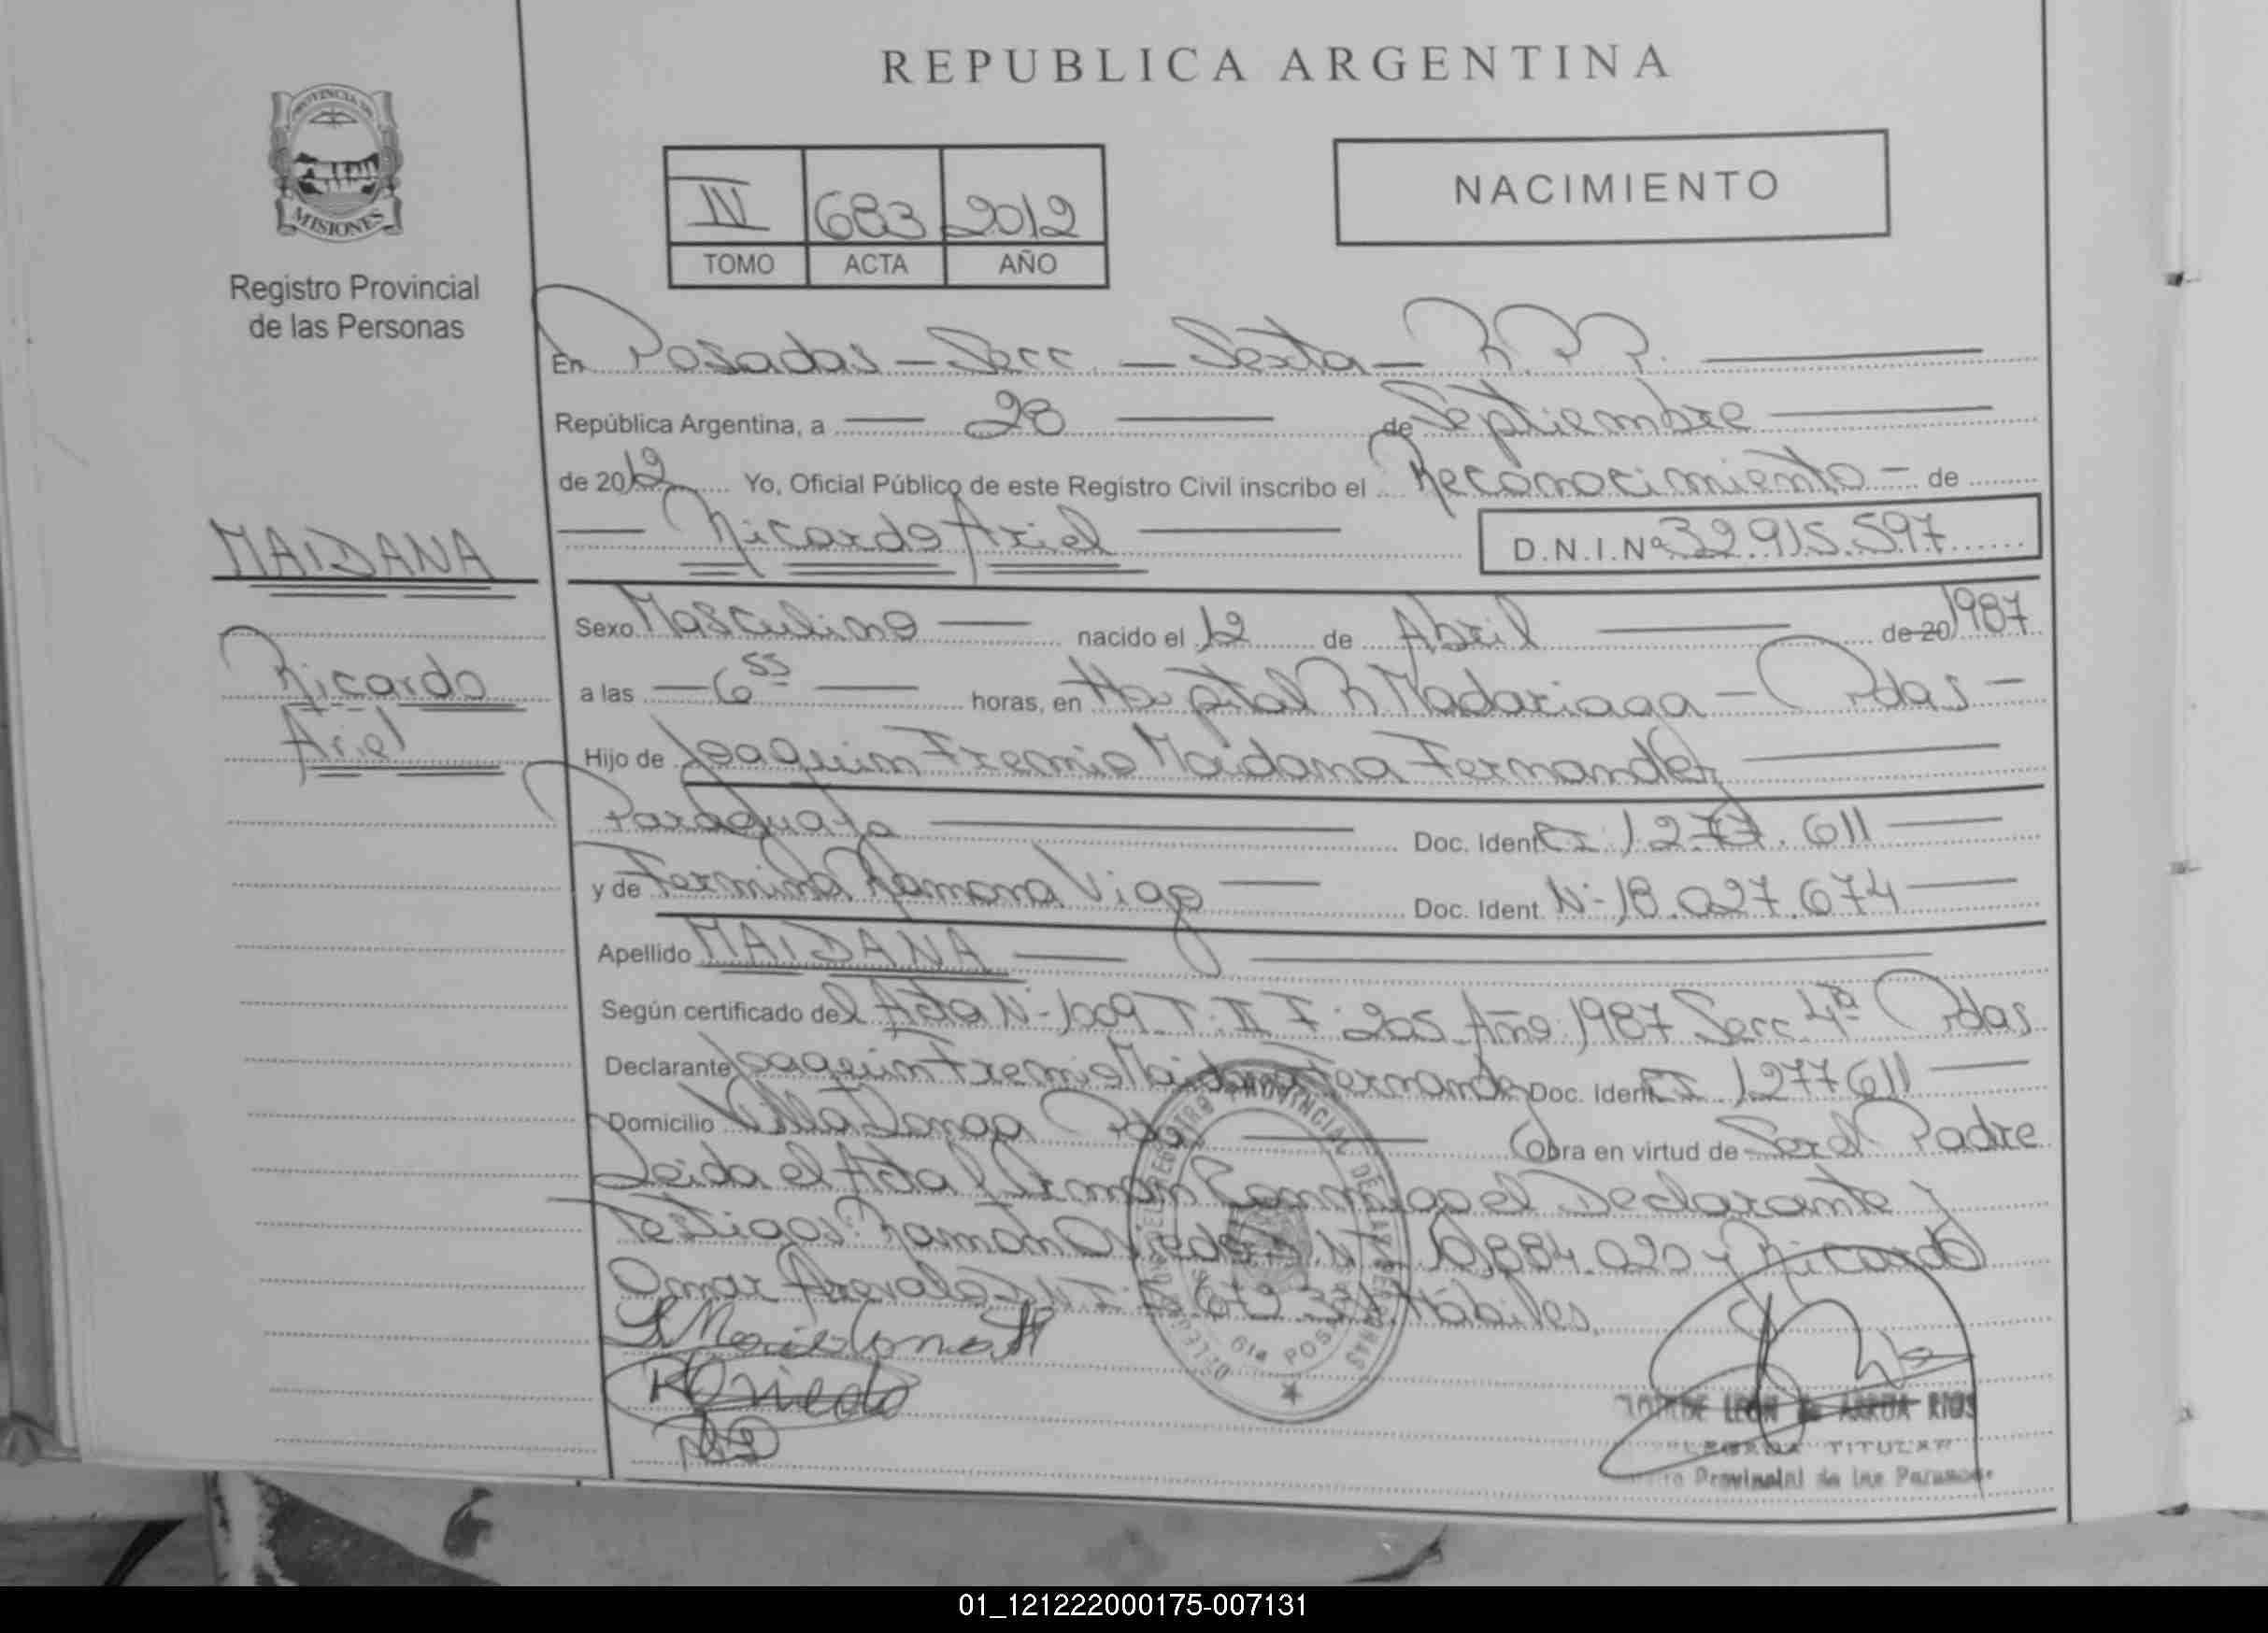 REPUBLICA ARGENTINA
PROVINCIA DE
MISIONES
Registro Provincial
de las Personas
IV 683 2012
TOMO ACTA AÑO
NACIMIENTO
En Posadas - Secc. - Sexta - R.P.P.
República Argentina, a 28 de Septiembre
de 2012 Yo, Oficial Público de este Registro Civil inscribo el Reconocimiento - de
Ricardo Ariel D.N.I.Nº 32.915.597
MAIDANA
Ricardo
Ariel
Sexo Masculino nacido el 12 de Abril de 20 1987
a las 6 55 horas, en Hospital R Madariaga - Pdas -
Hijo de Joaquin Fremio Maidana Fernandez
Paraguayo Doc. Ident CI 1.277.611
y de Fermina Ramona Vigo Doc. Ident. Nº 18.027.674
Apellido MAIDANA
Según certificado del Acta Nº 1009 T. II F. 205 Año 1987 Secc 4ª Pdas
Declarante Joaquin Fremio Maidana Fernandez Doc. Ident CI 1.277611
Domicilio Villa Longa Pdas Obra en virtud de Ser el Padre
Leida el Acta Firman Conmigo el Declarante y
Testigos: Ramon Oviedo 884.020 y Ricardo
Omar Arevalo DNI 672 Hábiles.
REGISTRO PROVINCIAL DE LAS PERSONAS
6ta POSADAS
LEON de ARRUA RIOS
TITULAR
Provincial de las Personas
01_121222000175-007131